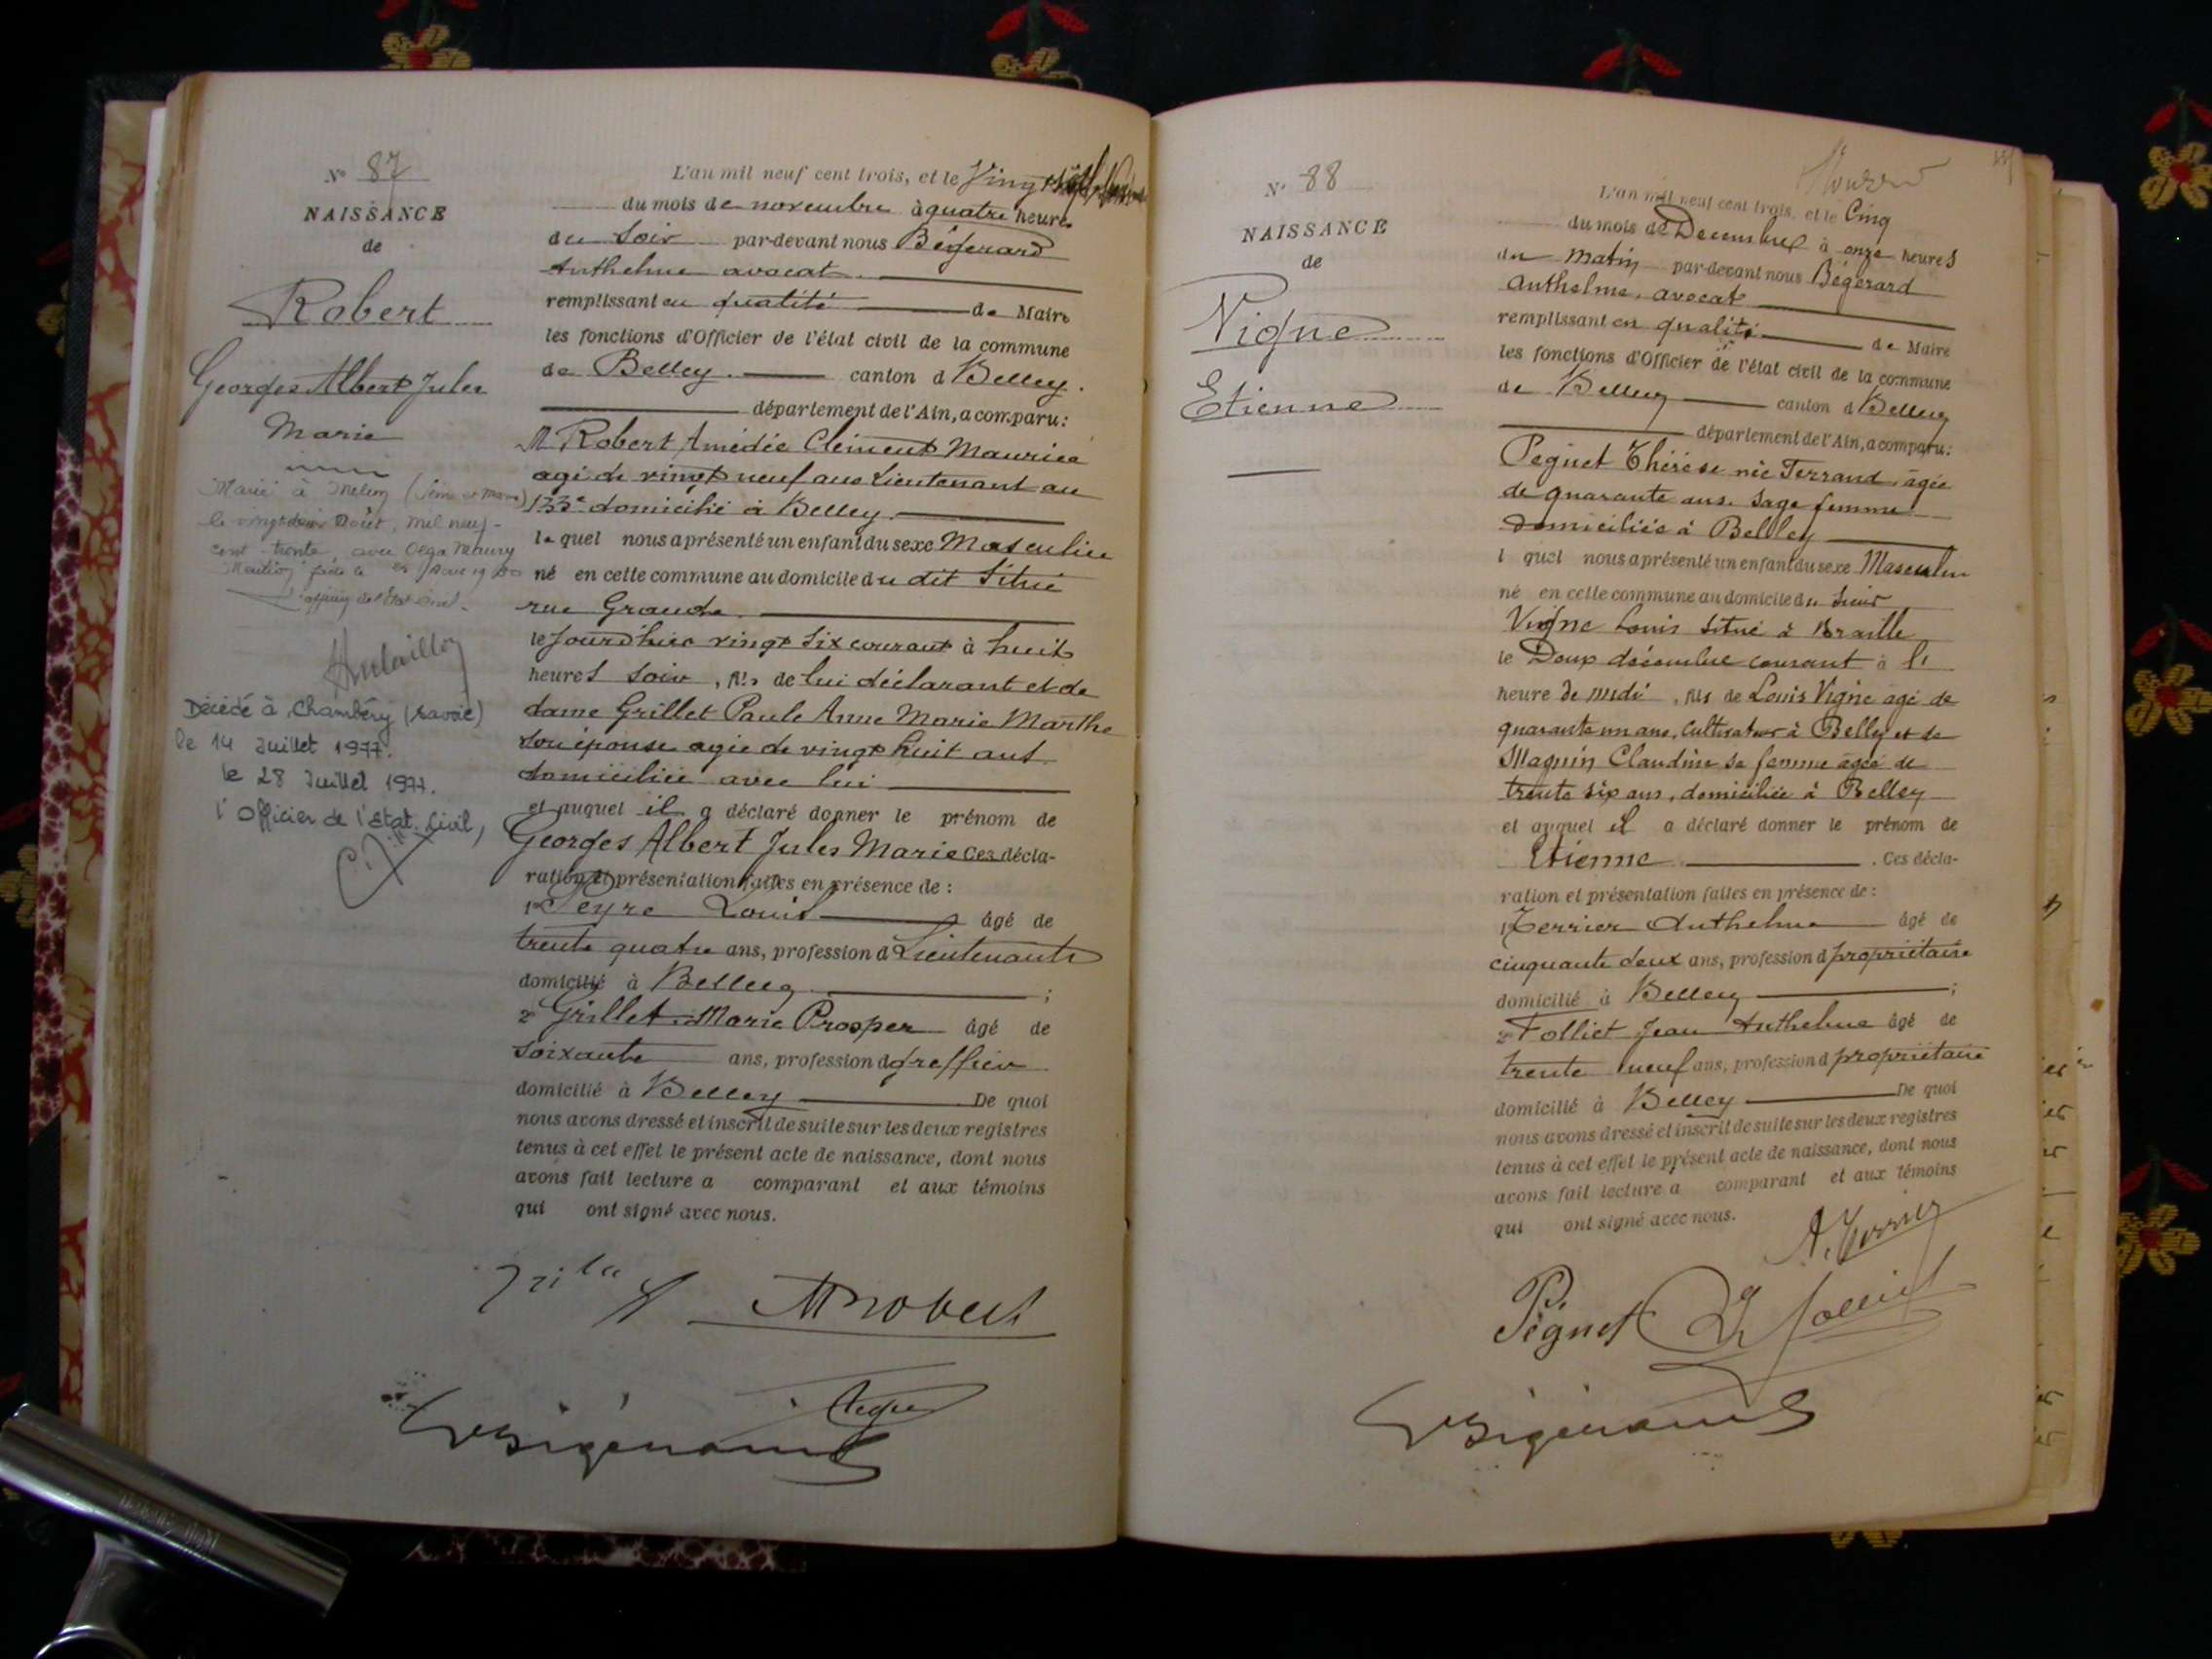 N° 87
NAISSANCE
de
Robert
Georges Albert Jules
Marie
Marié à Melun (Seine et Marne)
le vingt deux Août, mil neuf-
cent-trente, avec Olga Maury
Mention faite le
l'officier de l'état civil.
Décédé à Chambéry (Savoie)
le 14 Juillet 1977.
le 28 Juillet 1977.
l'Officier de l'Etat Civil,
L'an mil neuf cent trois, et le Vingt
du mois de novembre à quatre heures
du Soir par-devant nous Bégerard
Anthelme avocat
remplissant en qualité de Maire
les fonctions d'Officier de l'état civil de la commune
de Belley. canton d Belley.
département de l'Ain, a comparu:
M Robert Amédée Clément Maurice
agé de vingt neuf ans Lieutenant au
133e domicilié à Belley
lequel nous a présenté un enfant du sexe Masculin
né en cette commune au domicile du dit Situé
rue Grande
le jourd'hier vingt six courant à huit
heures soir, fils de lui déclarant et de
dame Grillet Paule Anne Marie Marthe
son épouse agée de vingt huit ans
domiciliée avec lui
et auquel il a déclaré donner le prénom de
Georges Albert Jules Marie Ces décla-
ration et présentation faites en présence de :
1° Peyre Louis âgé de
trente quatre ans, profession d Lieutenant
domicilié à Belley ;
2° Grillet Marie Prosper âgé de
soixante ans, profession d greffier
domicilié à Belley De quoi
nous avons dressé et inscrit de suite sur les deux registres
tenus à cet effet le présent acte de naissance, dont nous
avons fait lecture a comparant et aux témoins
qui ont signé avec nous.
MRobert
Bégerard
N° 88
NAISSANCE
de
Vigne
Etienne
L'an mil neuf cent trois, et le Cinq
du mois de Decembre à onze heures
du Matin par-devant nous Bégerard
Anthelme, avocat
remplissant en qualité de Maire
les fonctions d'Officier de l'état civil de la commune
de Belley canton d Belley
département de l'Ain, a comparu:
Peguet Thérèse née Ferrand, âgée
de quarante ans. Sage femme
domiciliée à Belley
l quel nous a présenté un enfant du sexe Masculin
né en cette commune au domicile du Sieur
Vigne Louis situé à Braille
le Deux décembre courant à l'
heure de midi, fils de Louis Vigne agé de
quarante un ans, Cultivateur à Belley et de
Maquin Claudine sa femme âgée de
trente six ans, domiciliée à Belley
et auquel il a déclaré donner le prénom de
Etienne . Ces décla-
ration et présentation faites en présence de :
1° Terrier Anthelme âgé de
cinquante deux ans, profession d propriétaire
domicilié à Belley ;
2° Folliet Jean Anthelme âgé de
trente neuf ans, profession d propriétaire
domicilié à Belley De quoi
nous avons dressé et inscrit de suite sur les deux registres
tenus à cet effet le présent acte de naissance, dont nous
avons fait lecture a comparant et aux témoins
qui ont signé avec nous.
A. Terrier
Péguet Folliet
Bégerard